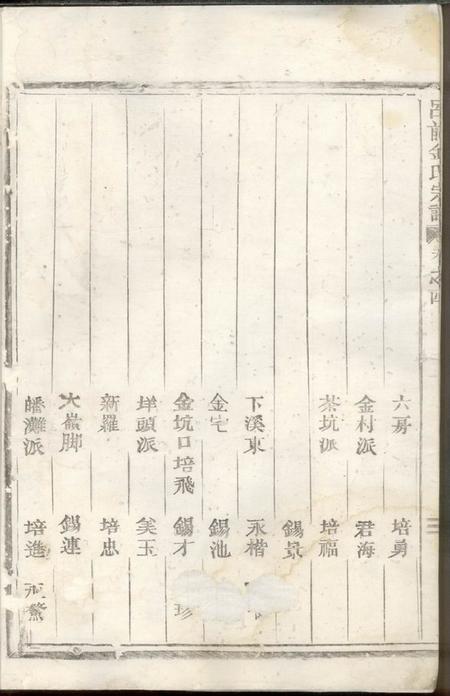 前金氏宗譜 卷之四
六房 培勇
金村派 君海
茶坑派 培福
錫景
下溪東 永楷
金宅 錫池
金坑口培飛 錫才 珍
垟頭派 美玉
新羅 培忠
大嶺脚 錫連
皤灘派 培進